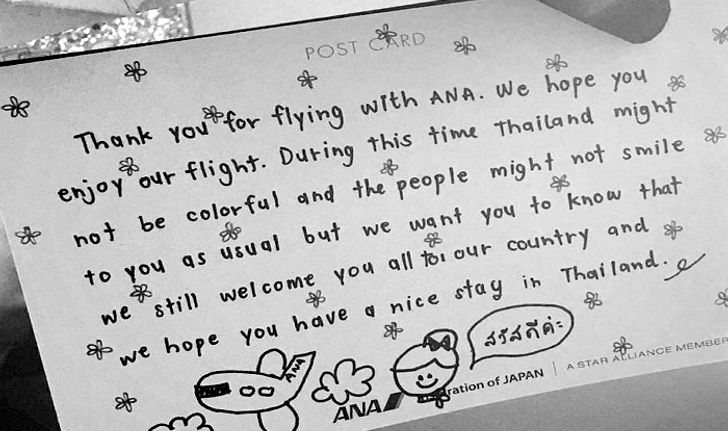 POST CARD
Thank you for flying with ANA. We hope you
enjoy our flight. During this time Thailand might
not be colorful and the people might not smile
to you as usual but we want you to know that
we still welcome you all to our country and
we hope you have a nice stay in Thailand.
สวัสดีค่ะ
ANA
ANA
ration of JAPAN | A STAR ALLIANCE MEMBER